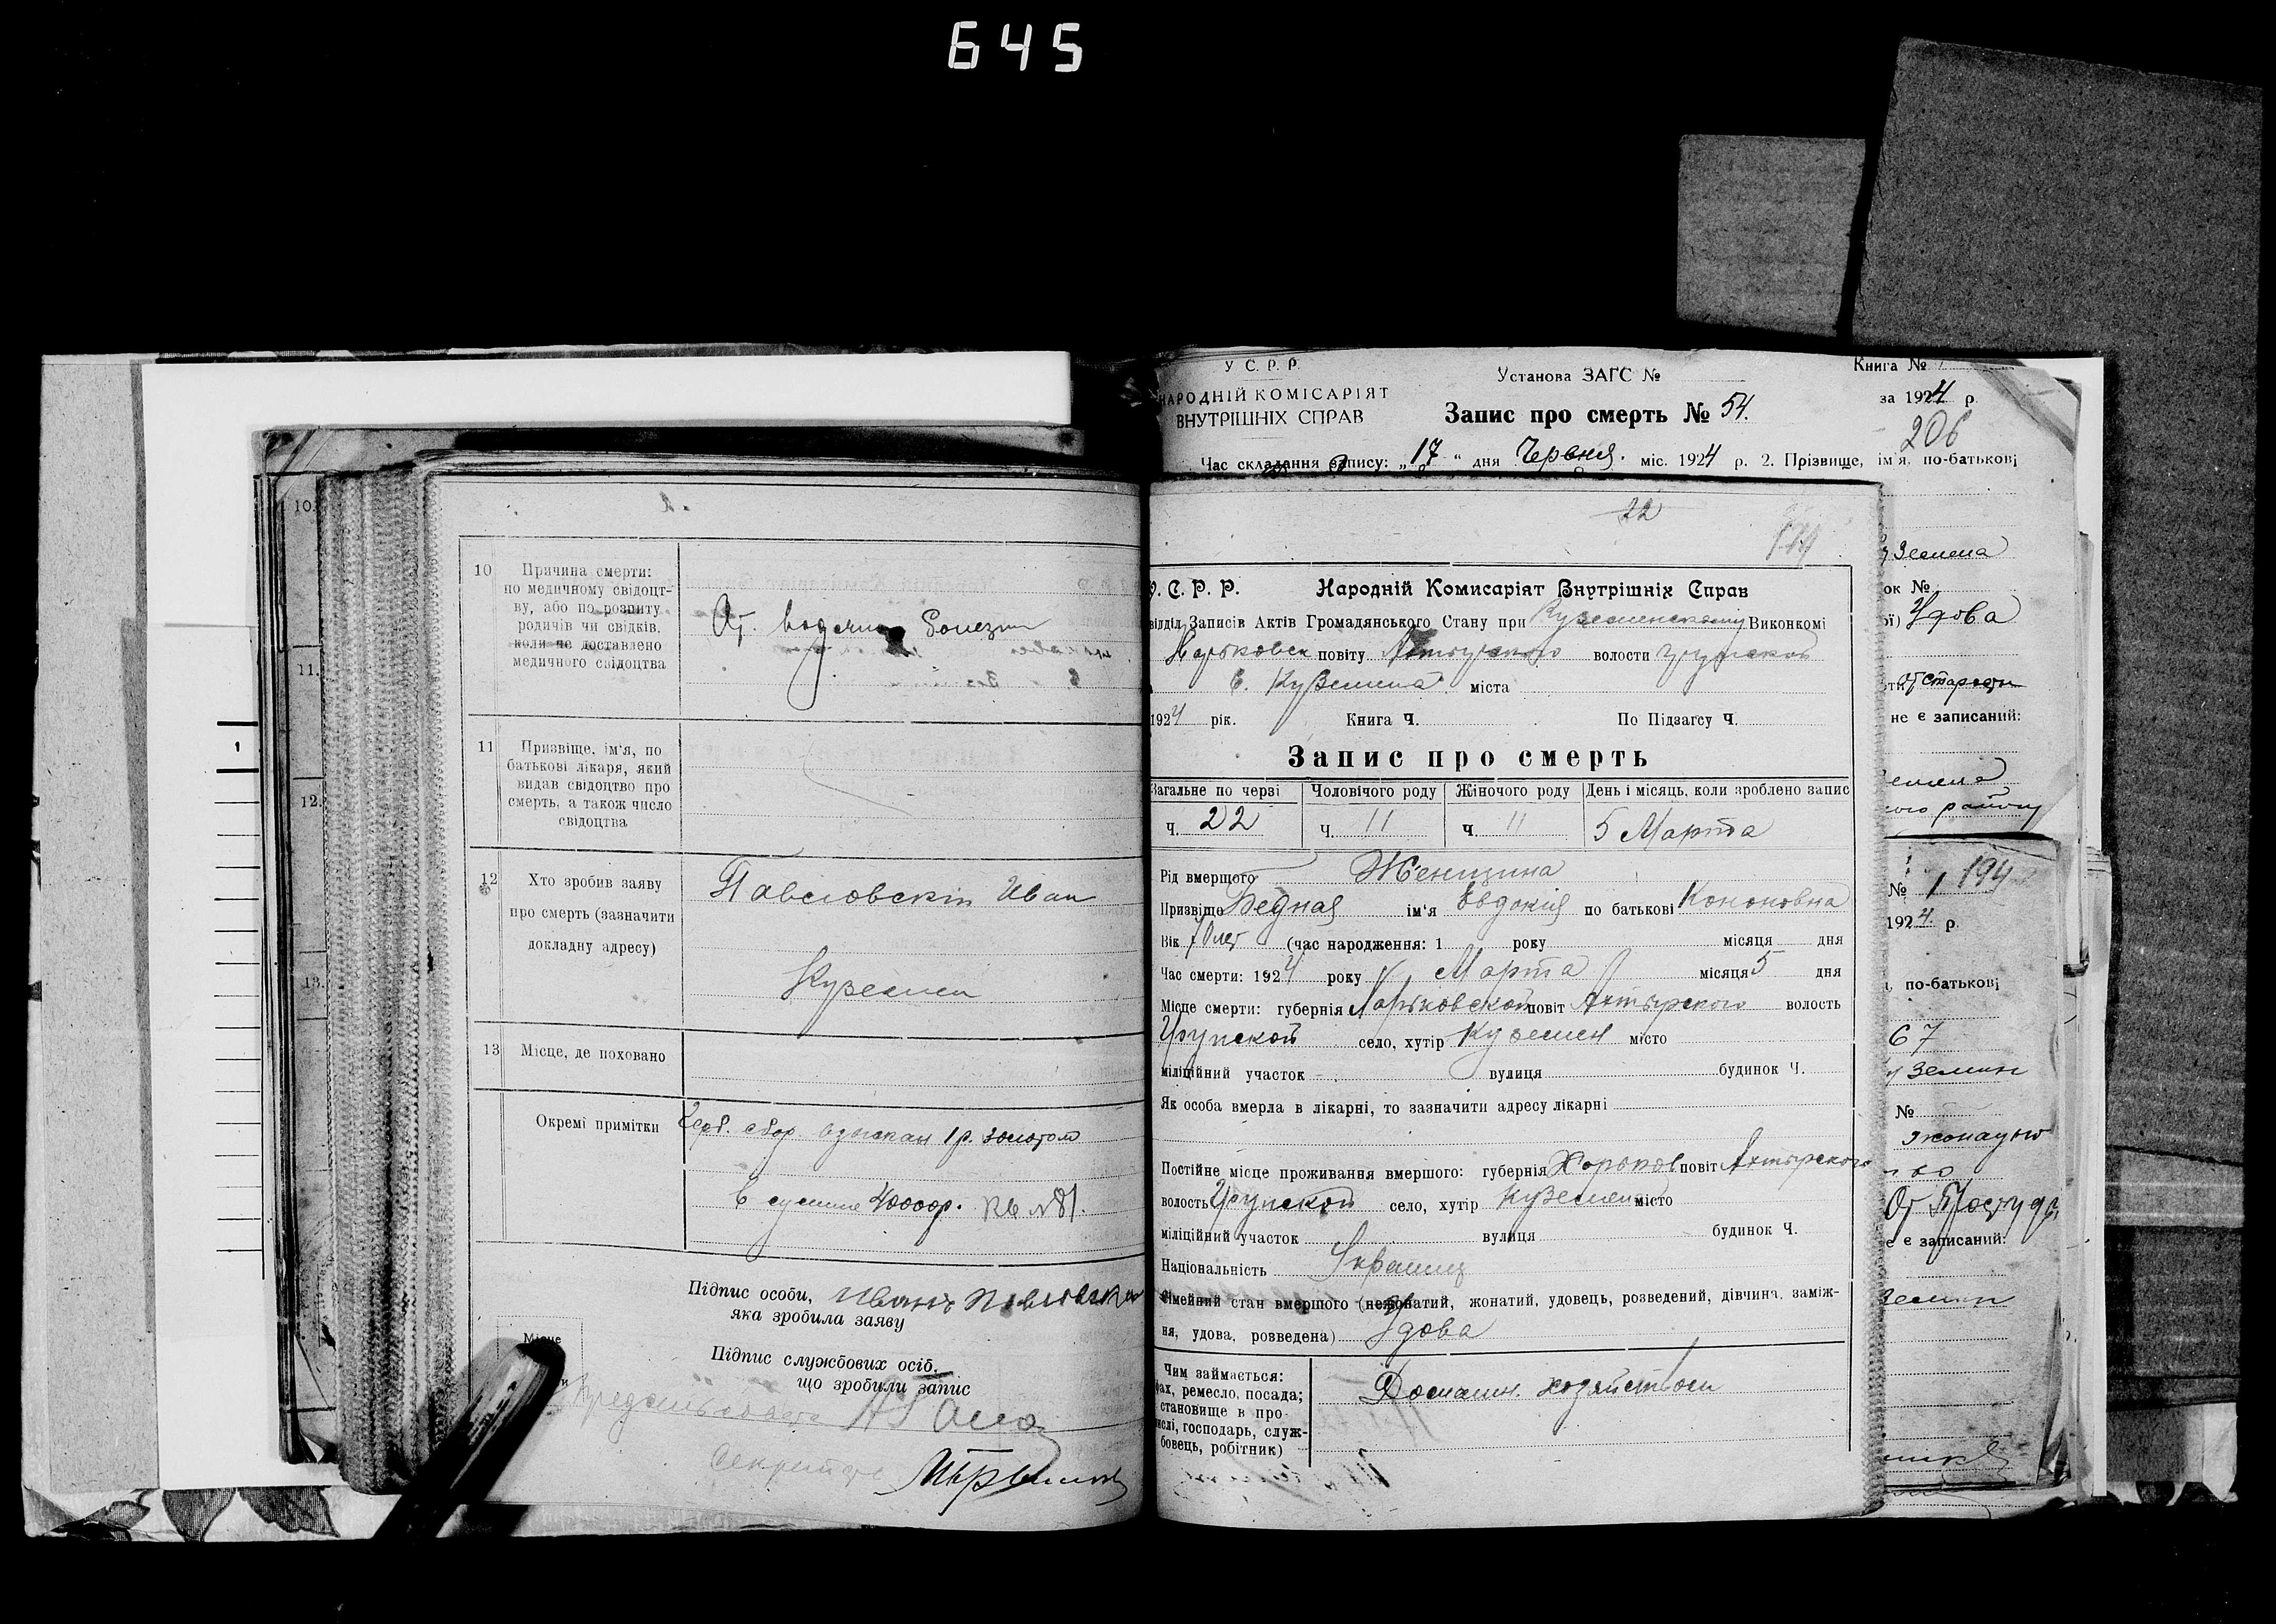 645
10
Причина смерти:
по медичному свідоцт-
ву, або по розпиту
родичів чи свідків,
коли не доставлено
медичного свідоцтва
От водяной болезни
11
Призвіще, ім'я, по
батькові лікаря, який
видав свідоцтво про
смерть, а також число
свідоцтва
12
Хто зробив заяву
про смерть (зазначити
докладну адресу)
Павловскій Иван
Куземин
13
Місце, де поховано
Окремі примітки
Герб. сбор взыскан 1 р. золотом
в сумме 40000р. Кв №81.
Підпис особи,
яка зробила заяву
Иванъ Павловский
Підпис службових осіб,
що зробили запис
Місце
Секретарь
10.
11.
12.
13.
1
У С. Р. Р.
НАРОДНІЙ КОМІСАРІЯТ
ВНУТРІШНІХ СПРАВ
Установа ЗАГС №
Запис про смерть № 54.
Книга №
за 1924 р.
206
Час складання запису: „17" дня Червня. міс. 1924 р. 2. Прізвище, ім'я, по-батькові
22
У. С. Р. Р. Народній Комисаріят Внутрішніх Справ
відділ Записів Актів Громадянського Стану при Куземенскому Виконкомі
Харьковск повіту Ахтырского волости
с. Куземена міста
1924 рік. Книга Ч. По Підзагсу Ч.
Запис про смерть
Загальне по черзі Чоловічого роду Жіночого роду День і місяць, коли зроблено запис
ч. 22 ч. 11 ч. 11 5 Марта
Рід вмершого Женщина
Призвіще Бедная ім'я Евдокия по батькові Кононовна
Вік 70 лет (час народження: 1 року місяця дня
Час смерти: 1924 року Марта місяця 5 дня
Місце смерти: губернія Харьковской повіт Ахтырского волость
Грунской село, хутір Куземен місто
міліційний участок вулиця будинок Ч.
Як особа вмерла в лікарні, то зазначити адресу лікарні
Постійне місце проживання вмершого: губернія Харьков повіт Ахтырского
волость Грунской село, хутір Куземен місто
міліційний участок вулиця будинок Ч.
Національність Украинц
Сімейний стан вмершого (нежонатий, жонатий, удовець, розведений, дівчина, заміж-
ня, удова, розведена) Удова
Чим займається:
фах, ремесло, посада;
становище в про-
мислі, господарь, служ-
бовець, робітник)
Домашн. хозяйством
Удова
от старости
не є записаний:
району
№ 1
194
1924 р.
по-батькові
67
Земин
№
От Простуды
є записаний: